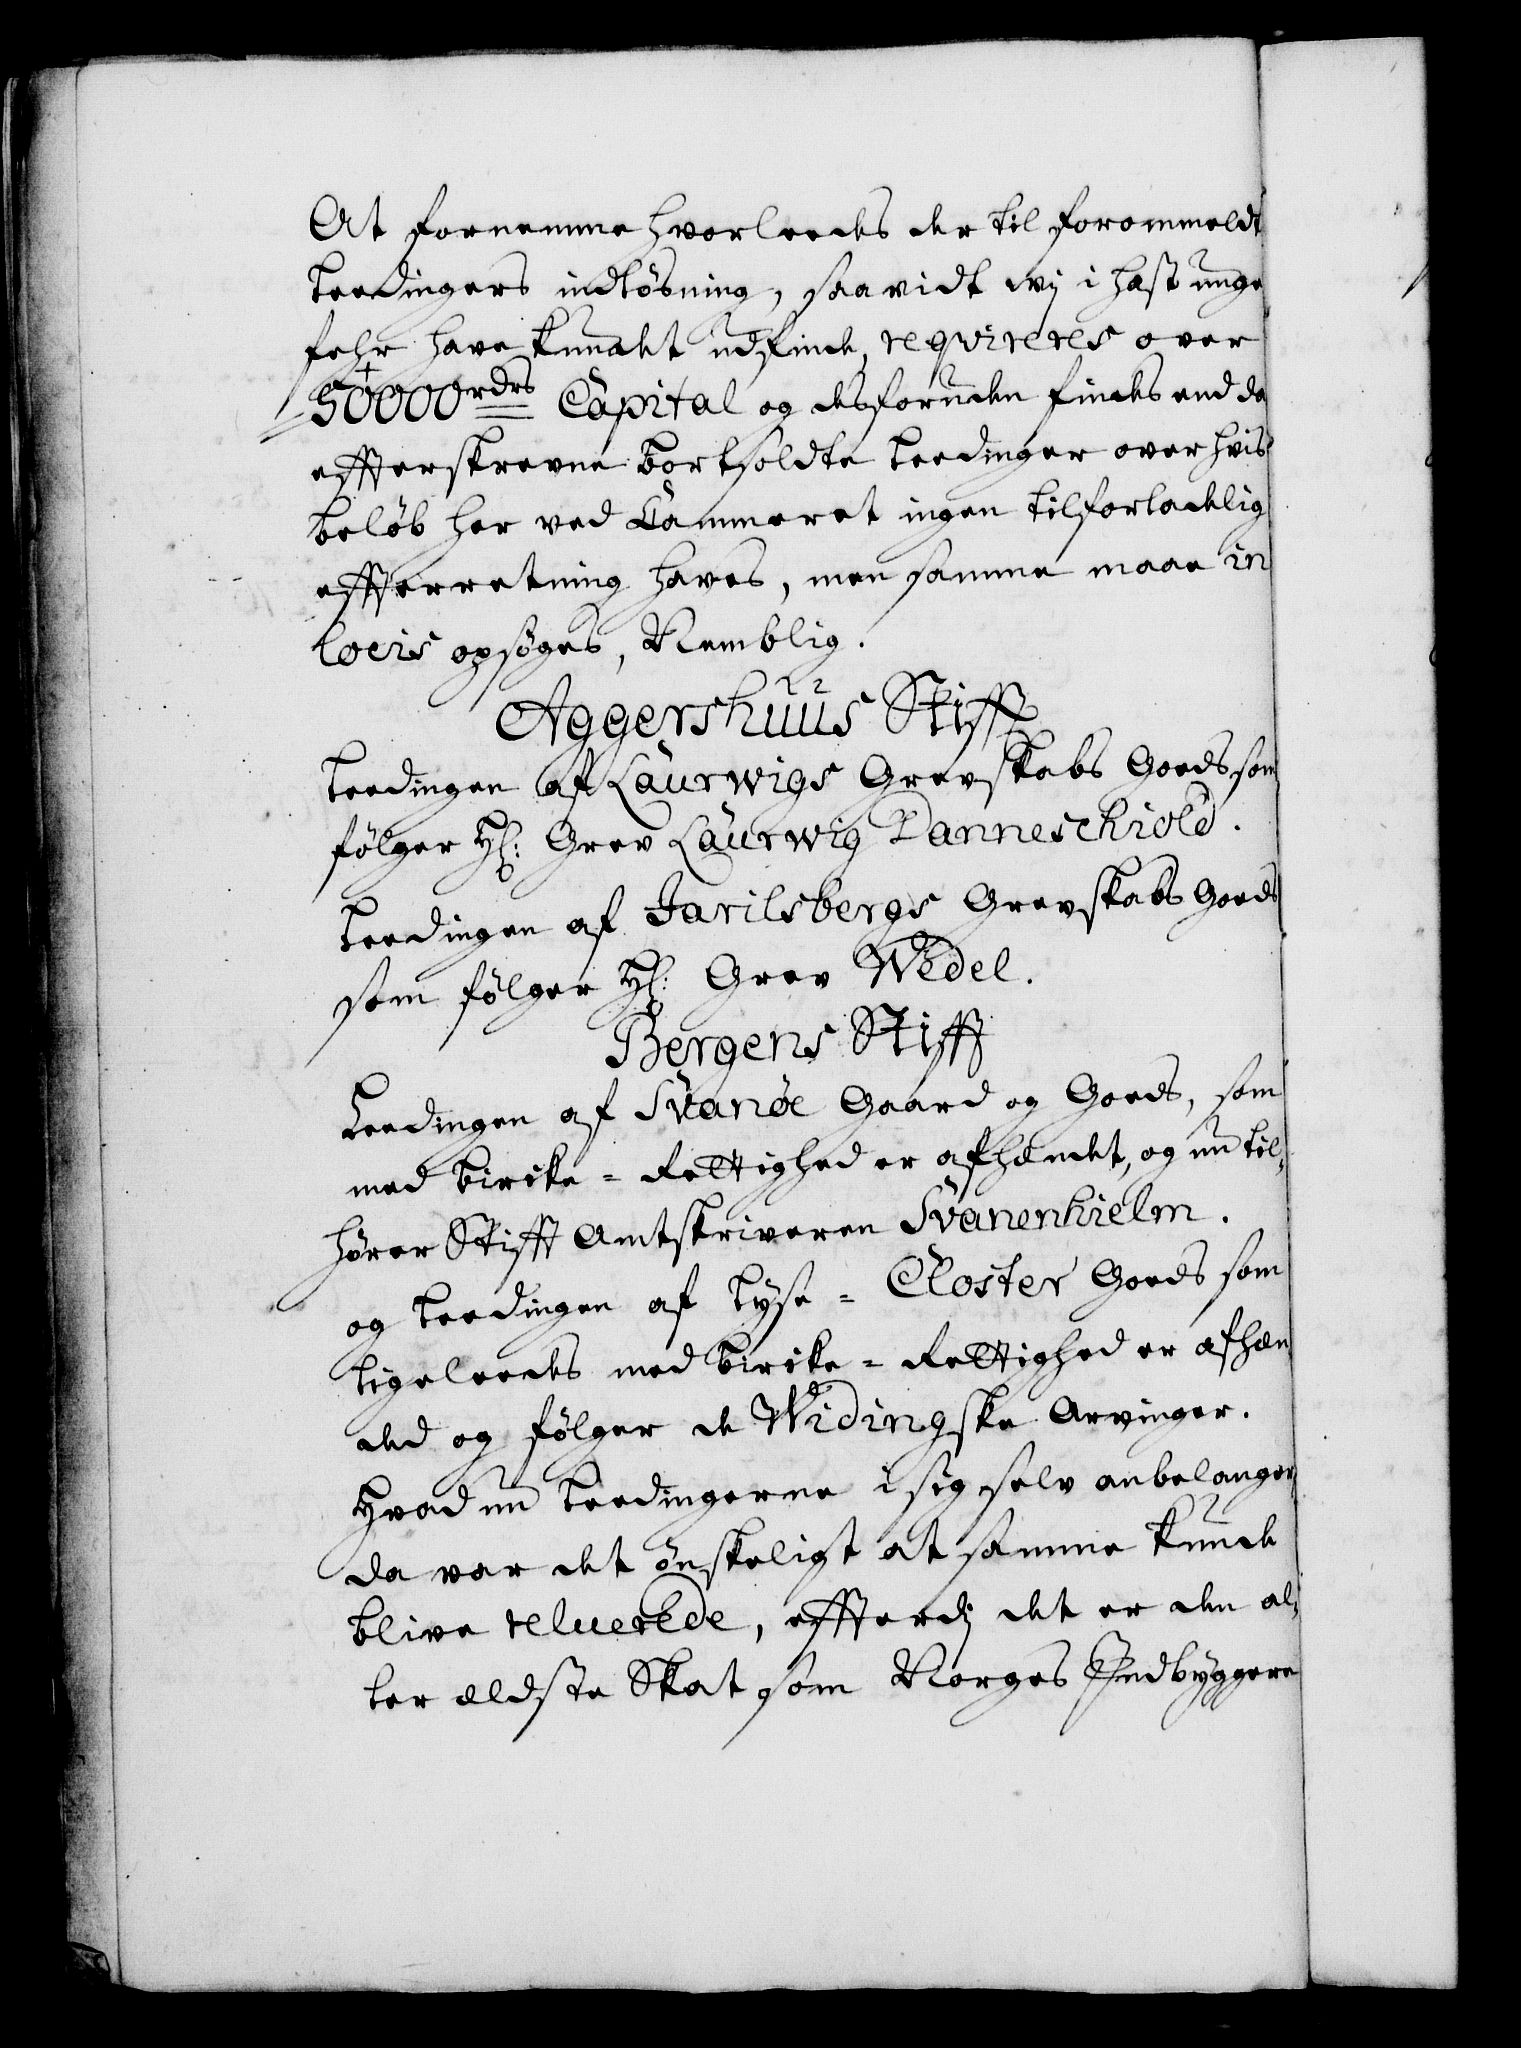 At fornemme hvorleedes der til forommeldt
Leedingers indløsning, saavidt wij i hast unge
fehr have kundet udfinde, reqvireres over
50000 rdrs Capital og desforuden findes end da
effterskrevne bortsoldte Leedinger over hvis
beløb her ved Cammeret ingen tilforladelig
effterretning haves, men samme maae in
locis opsøges, Nemblig.
Aggershuus Stifft
Leedingen af Laurwigs Grevskabs Goeds som
følger H: Grev Laurwig Danneschiold.
Leedingen af Jarilsbergs Grevskabs Goeds
som følger H: Grev Wedel.
Bergens Stifft
Leedingen af Svanøe Gaard og Goeds, som
med birke-Rettighed er afhændet, og nu til-
hører Stifft Amtskriveren Svanenhielm.
og Leedingen af Lyse-Closter Goeds som
ligeleedes med birke-Rettighed er afhæn
ded og følger de Widingske Arvinger.
Hvad nu Leedingerne i sig selv anbelanger,
da var det ønskeligt at samme kunde
blive reluerede, effterdj det er den al-
ler ældste Skat som Norges Indbyggere